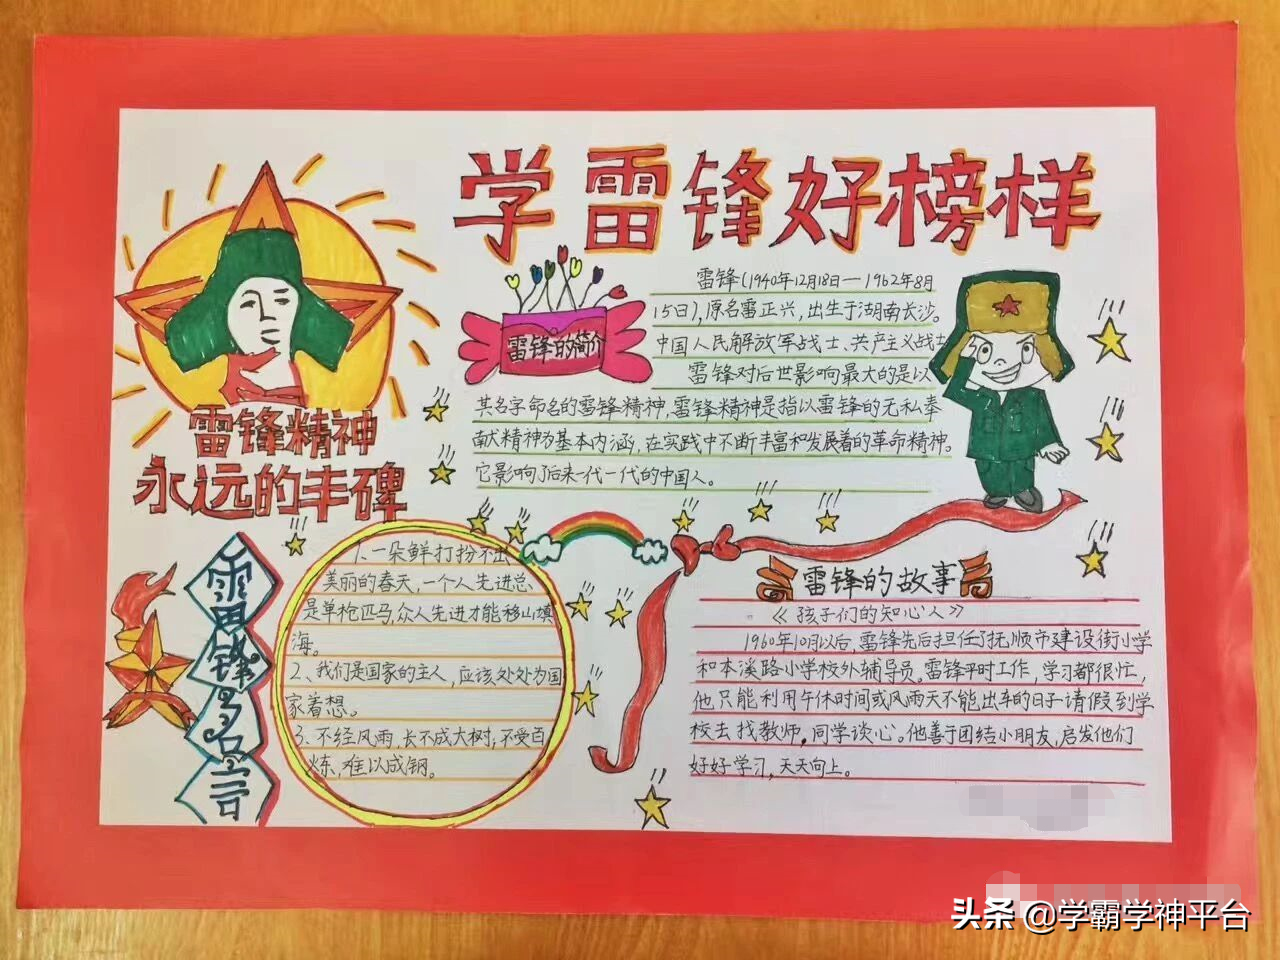 学雷锋好榜样
雷锋精神
永远的丰碑
雷锋的简介
雷锋(1940年12月18日—1962年8月
15日),原名雷正兴,出生于湖南长沙。
中国人民解放军战士、共产主义战士
雷锋对后世影响最大的是以
其名字命名的雷锋精神,雷锋精神是指以雷锋的无私奉
献精神为基本内涵,在实践中不断丰富和发展着的革命精神。
它影响了后来一代一代的中国人。
雷锋名言
1.一朵鲜打扮不出
美丽的春天,一个人先进总
是单枪匹马,众人先进才能移山填
海。
2、我们是国家的主人,应该处处为国
家着想。
3、不经风雨,长不成大树;不受百
炼,难以成钢。
雷锋的故事
《孩子们的知心人》
1960年10月以后,雷锋先后担任了抚顺市建设街小学
和本溪路小学校外辅导员。雷锋平时工作,学习都很忙,
他只能利用午休时间或风雨天不能出车的日子请假到学
校去找教师,同学谈心。他善于团结小朋友,启发他们
好好学习,天天向上。
头条 @学霸学神平台